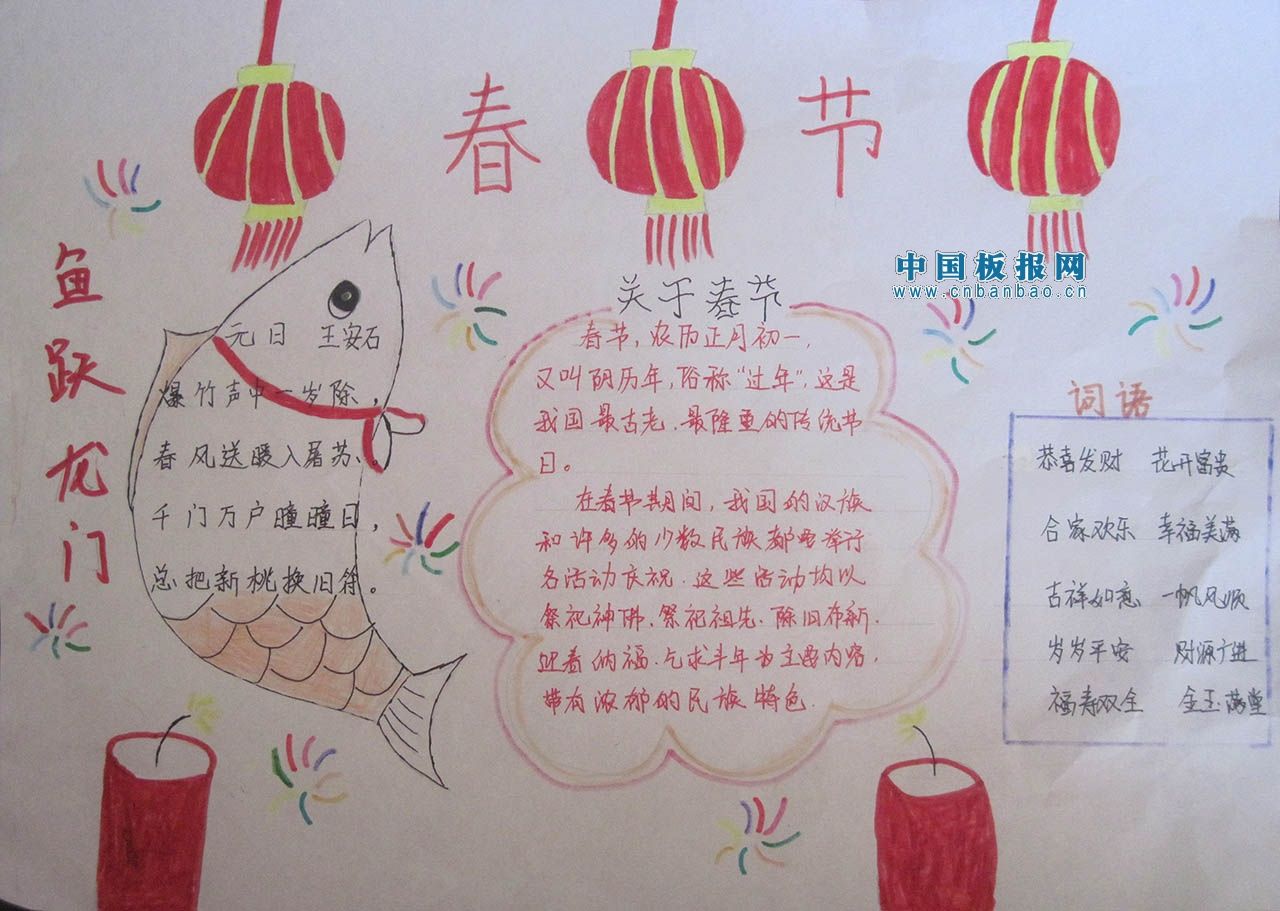 春节
中国板报网
www.cnbanbao.cn
鱼跃龙门
元日 王安石
爆竹声中一岁除，
春风送暖入屠苏。
千门万户曈曈日，
总把新桃换旧符。
关于春节
春节，农历正月初一，
又叫阴历年，俗称“过年”，这是
我国最古老、最隆重的传统节
日。
在春节期间，我国的汉族
和许多的少数民族都要举行
各活动庆祝．这些活动均以
祭祀神佛、祭祀祖先、除旧布新、
迎春纳福、乞求丰年为主要内容，
带有浓郁的民族特色．
词语
恭喜发财 花开富贵
合家欢乐 幸福美满
吉祥如意 一帆风顺
岁岁平安 财源广进
福寿双全 金玉满堂